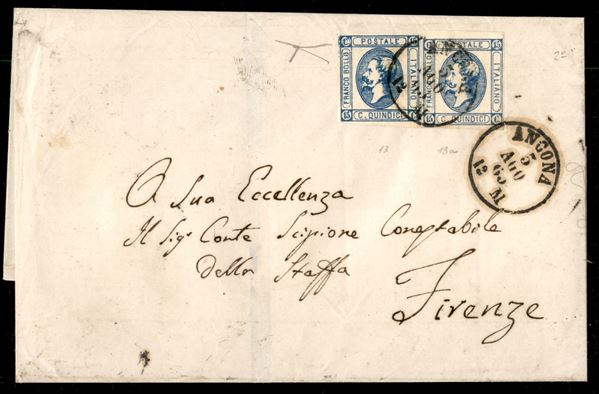 FRANCO BOLLO POSTALE ITALIANO C. QUINDICI
15 15 C
FRANCO BOLLO ITALIANO C. QUINDICI
15 15 C
ANCONA
5
AGO
63
12 M
13 13a
A Sua Eccellenza
Il Sigr Conte Scipione Conestabile
della Staffa
Firenze